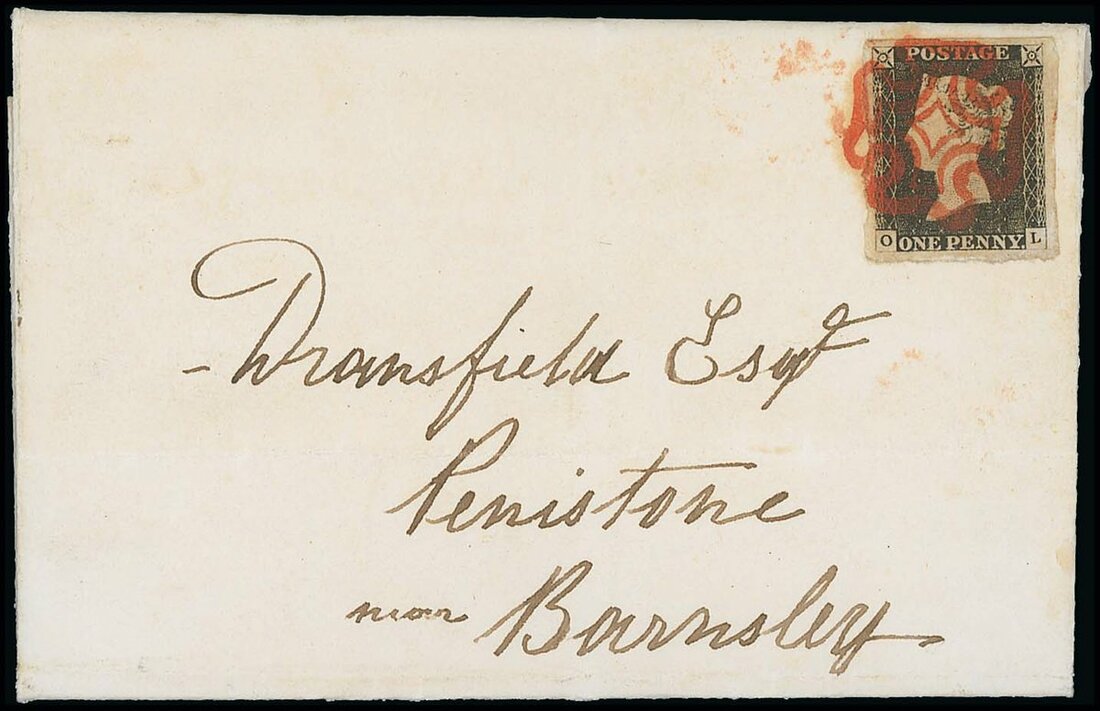 POSTAGE
O ONE PENNY. L
- Dransfield Esqr
Penistone
near Barnsley